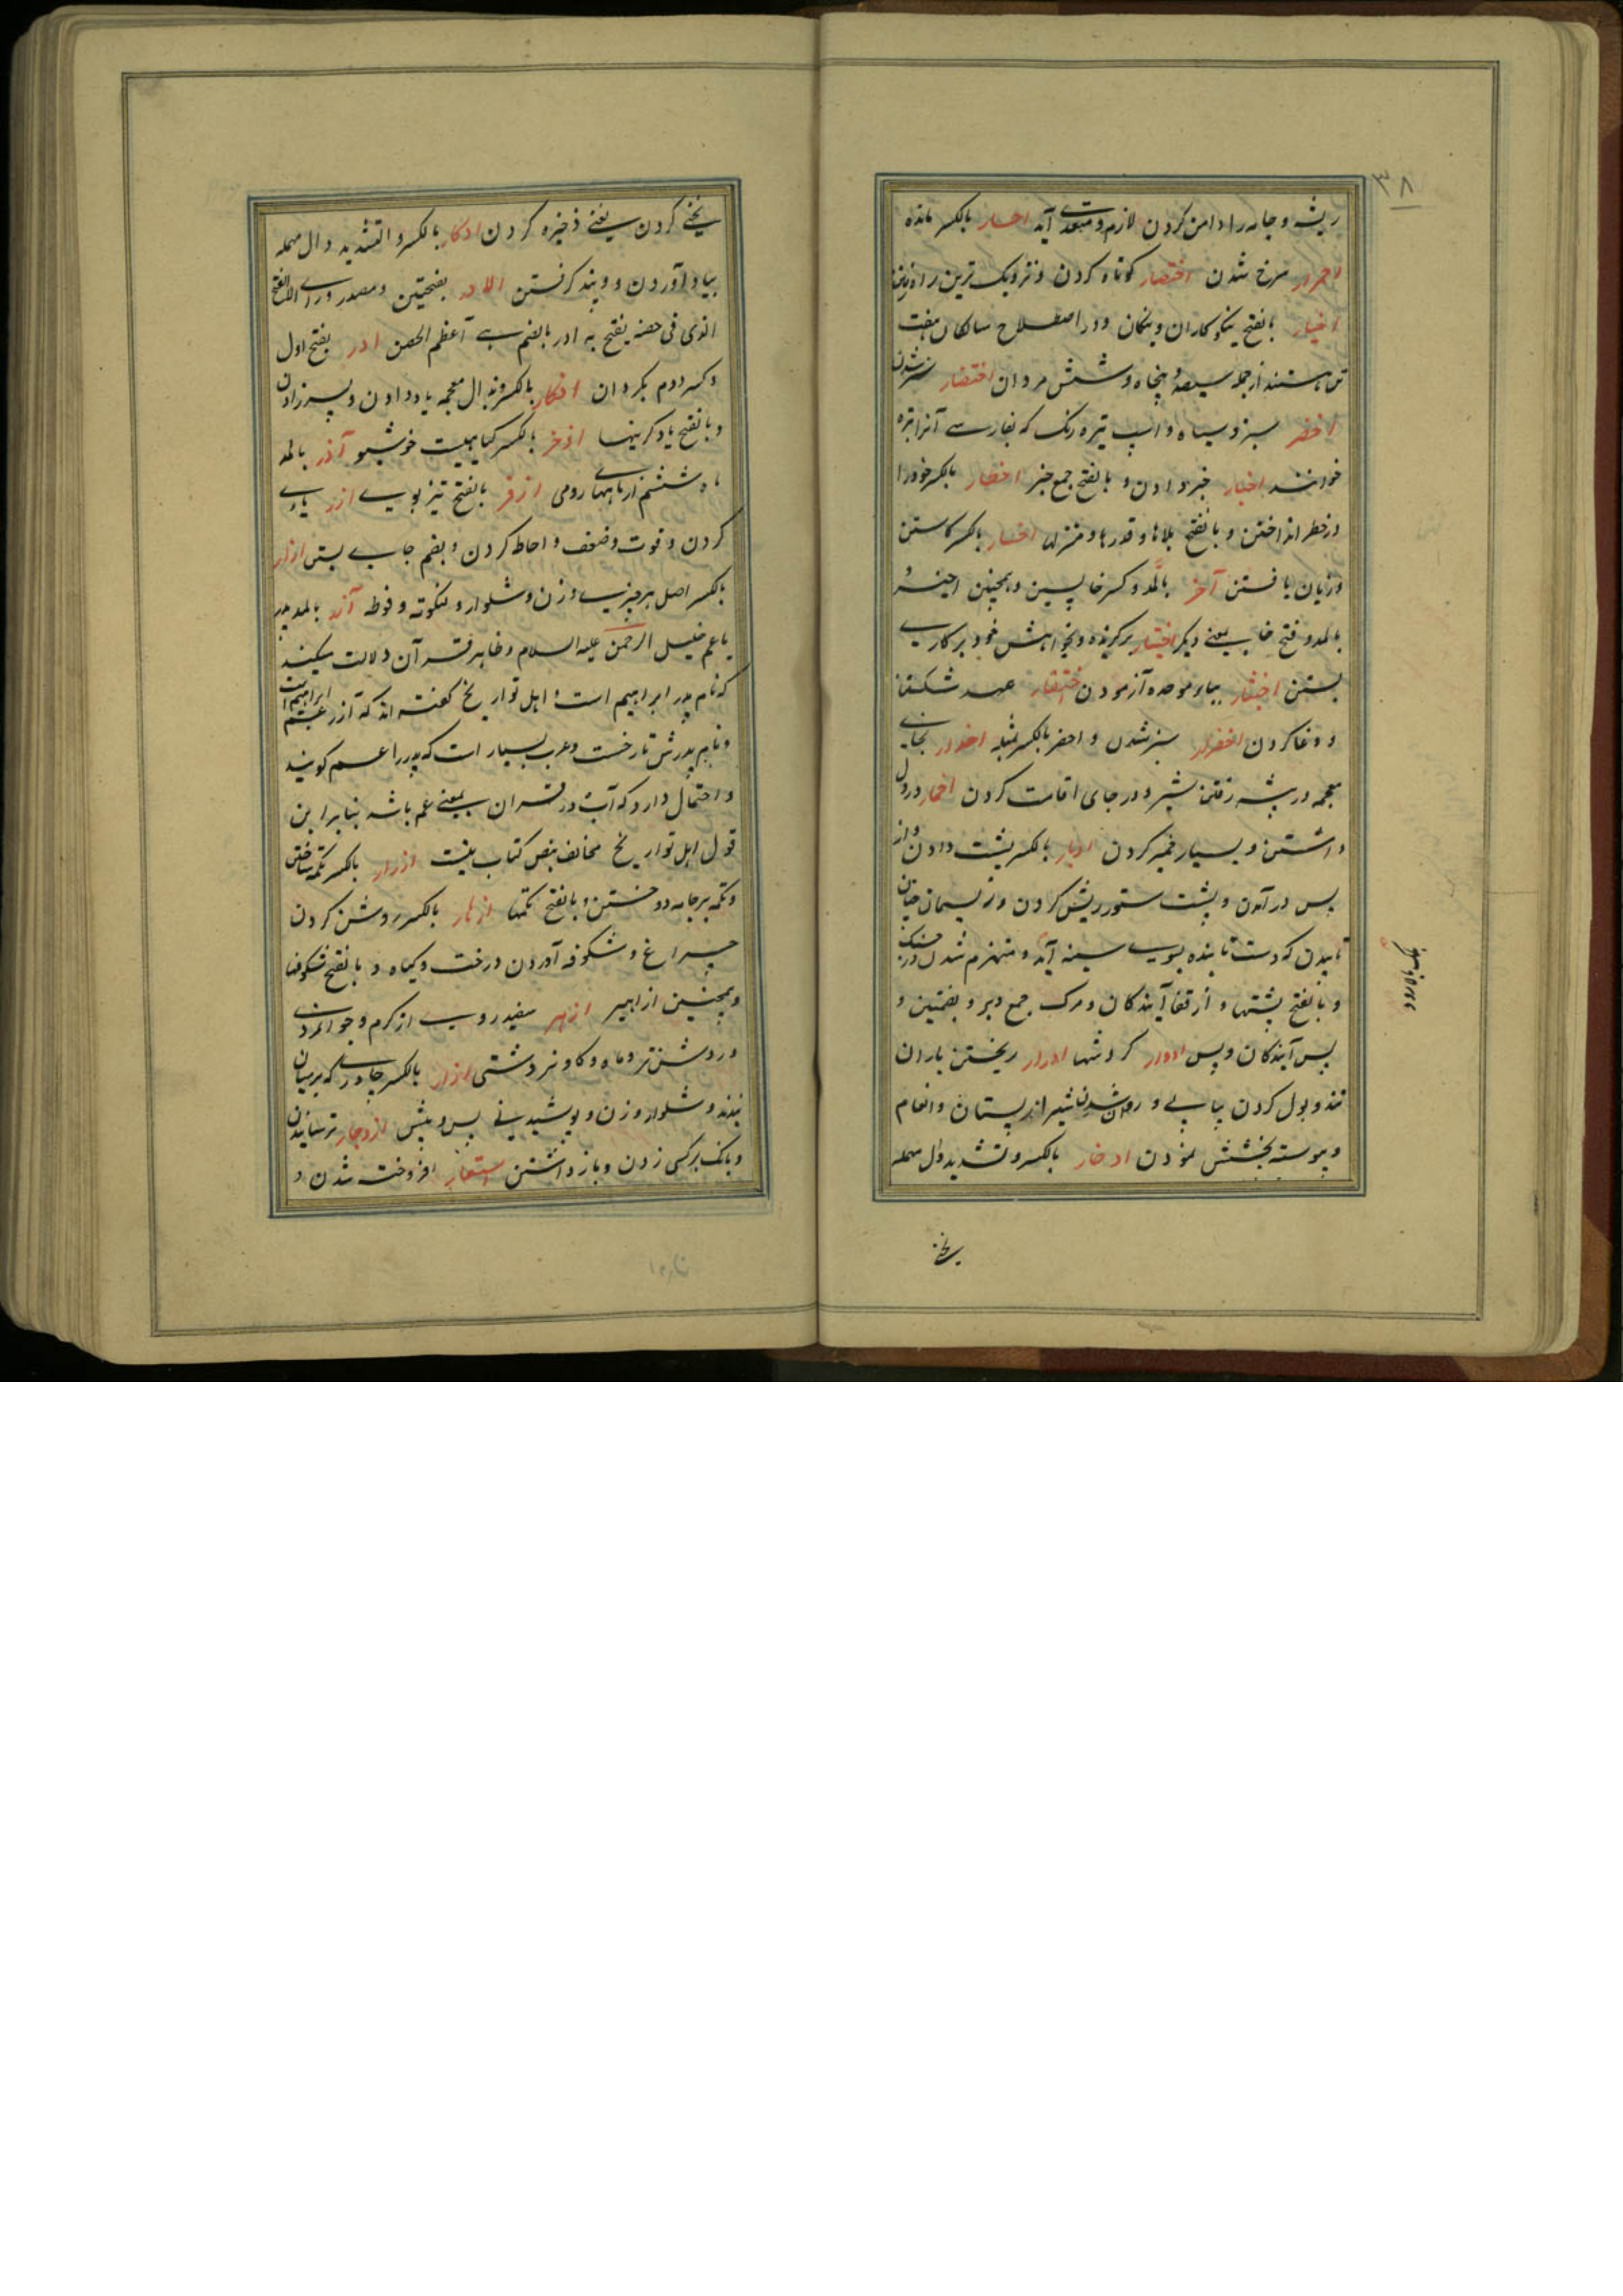 ۳۸
ریشه و جامه را دامن کردن لازم و متعدی آید احسار بالکسر مانده
احمرار سرخ شدن اختصار کوتاه کردن و نزدیک ترین راه رفتن
اخیار بالفتح نیکوکاران و نیکان و در اصطلاح سالکان هفت
تن هستند از جمله سیصد و پنجاه و شش مردان اختضار سبز شدن
اخضر سبز و سیاه و اسب تیره رنک که بفارسی آنرا تیره
خوانند اخبار خبر دادن و بالفتح جمع خبر اخطار بالکسر خود را
در خطر انداختن و بالفتح بلاها و قدرها و منزلها اخسار بالکسر کاستن
و زیان یافتن آخر بالمد و کسر خا پسین و همچنین اخیر و
بالمد و فتح خا یعنی دیکر اختیار برکزیده و بخواهش خود بر کاری
بستن اختبار بباء موحده آزمودن اختفار عهد شکستن
و دغا کردن اخضرار سبز شدن و احضر بالکسر مثله اخدار بخای
معجمه در بیشه رفتن شیر و در جای اقامت کردن اخمار در دل
داشتن و بسیار خمیر کردن ادبار بالکسر پشت دادن و از
پس در آمدن و پشت ستور ریش کردن و ریسمان چنان
تابیدن که دست تابنده بسوی سینه آید و منهزم شدن در جنک
و بالفتح پشتها و از قفا آیندکان و مرک جمع دبر و بضمتین و
پس آیندکان و پس ادوار کردشها ادرار ریختن باران
تند و بول کردن پیاپی و روان شدن شیر از پستان و انعام
و پیوسته بخشش نمودن ادخار بالکسر و تشدید دال مهمله
یخنی
یخنی کردن یعنی ذخیره کردن ادکار بالکسر و التشدید دال مهمله
بیاد آوردن و پند کرفتن الادر بفتحتین و مصدر و رای الانفتح
الذی فی حضنه یفتح به ادر بالضم بی آعظم الحصن ادر بفتح اول
و کسر دوم بکردان اذکار بالکسر و بذال معجمه یاد دادن و پسر زادن
و بالفتح یاد کرینها اذخر بالکسر کیاهیست خوشبو آذر بالمد
ماه ششم از ماههای رومی اذفر بالفتح تیز بوی ازر یاری
کردن و قوت و ضعف و احاطه کردن و بضم جای بستن ازار
بالکسر اصل هر چیزی و زن و شلوار و لنکوته و فوطه آزر بالمد پدر
یا عم خلیل الرحمن علیه السلام و ظاهر قرآن دلالت میکند
که نام پدر ابراهیم است و اهل تواریخ کفته اند که آزر عم ابراهیم است
و نام پدرش تارخست و عرب بسیار است که پدر را عم کویند
و احتمال دارد که آب در قرآن بمعنی عم باشد بنابر این
قول اهل تواریخ مخالف نص کتاب نیست ازرار بالکسر تکمه ساختن
و تکمه بر جامه دوختن و بالفتح تکمها ازهار بالکسر روشن کردن
چراغ و شکوفه آوردن درخت و کیاه و بالفتح شکوفها
و همچنین ازاهیر ازهر سفید روی از کرم و جوانمردی
و روشن تر و ماه و کاو نر دشتی ازار بالکسر چادری که بر میان
بندند و شلوار و زن و پوشیدنی پس و پیش ازدجار ترسانیدن
و بانک بر کسی زدن و باز داشتن استعار افروخته شدن و